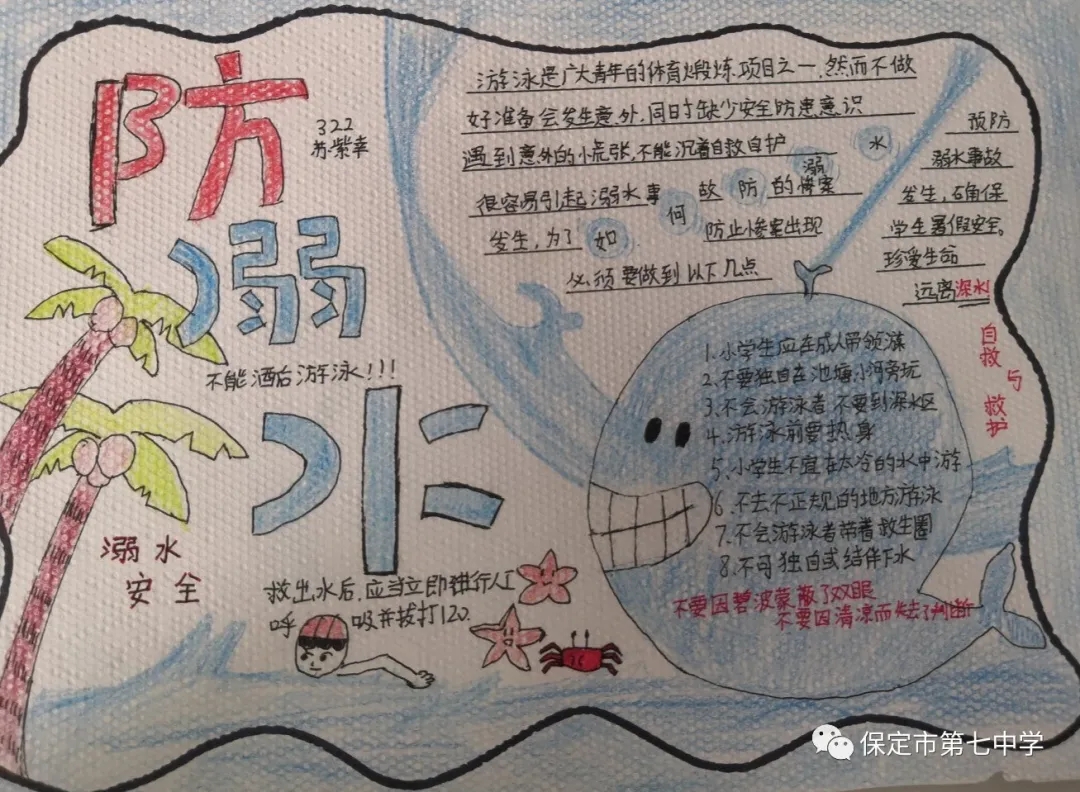 防
322
苏紫幸
溺
不能酒后游泳!!!
水
溺水
安全
救出水后,应当立即进行人工
呼吸并拔打120.
游泳是广大青年的体育煅炼项目之一,然而不做
好准备会发生意外,同时缺少安全防患意识
遇到意外的小慌张,不能沉着自救自护
很容易引起溺水事故的惨案
发生,为了防止惨案出现
必须要做到以下几点
如何防溺水
预防
溺水事故
发生,确保
学生暑假安全。
珍爱生命
远离深水!
自救与救护
1.小学生应在成人带领
2.不要独自在池塘小河旁玩
3.不会游泳者不要到深水区
4.游泳前要热身
5.小学生不宜在太冷的水中游
6.不去不正规的地方游泳
7.不会游泳者带着救生圈
8.不可独自或结伴下水
不要因碧波蒙蔽了双眼
不要因清凉而失去了判断
保定市第七中学